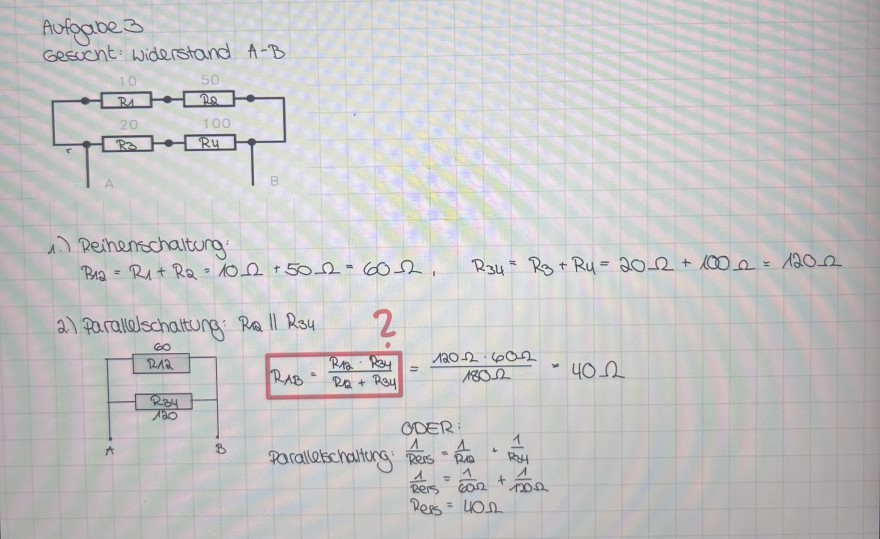 Aufgabe 3
Gesucht: Widerstand A-B
10 50
R1 R2
20 100
R3 R4
A B
1.) Reihenschaltung:
R12 = R1 + R2 = 10 Ω + 50 Ω = 60 Ω , R34 = R3 + R4 = 20 Ω + 100 Ω = 120 Ω
2.) Parallelschaltung: R12 || R34 ?
60
R12
R34
120
A B
RAB = R12 · R34 / R12 + R34 = 120 Ω · 60 Ω / 180 Ω = 40 Ω
ODER:
Parallelschaltung: 1/Rers = 1/R12 + 1/R34
1/Rers = 1/60Ω + 1/120Ω
Rers = 40 Ω